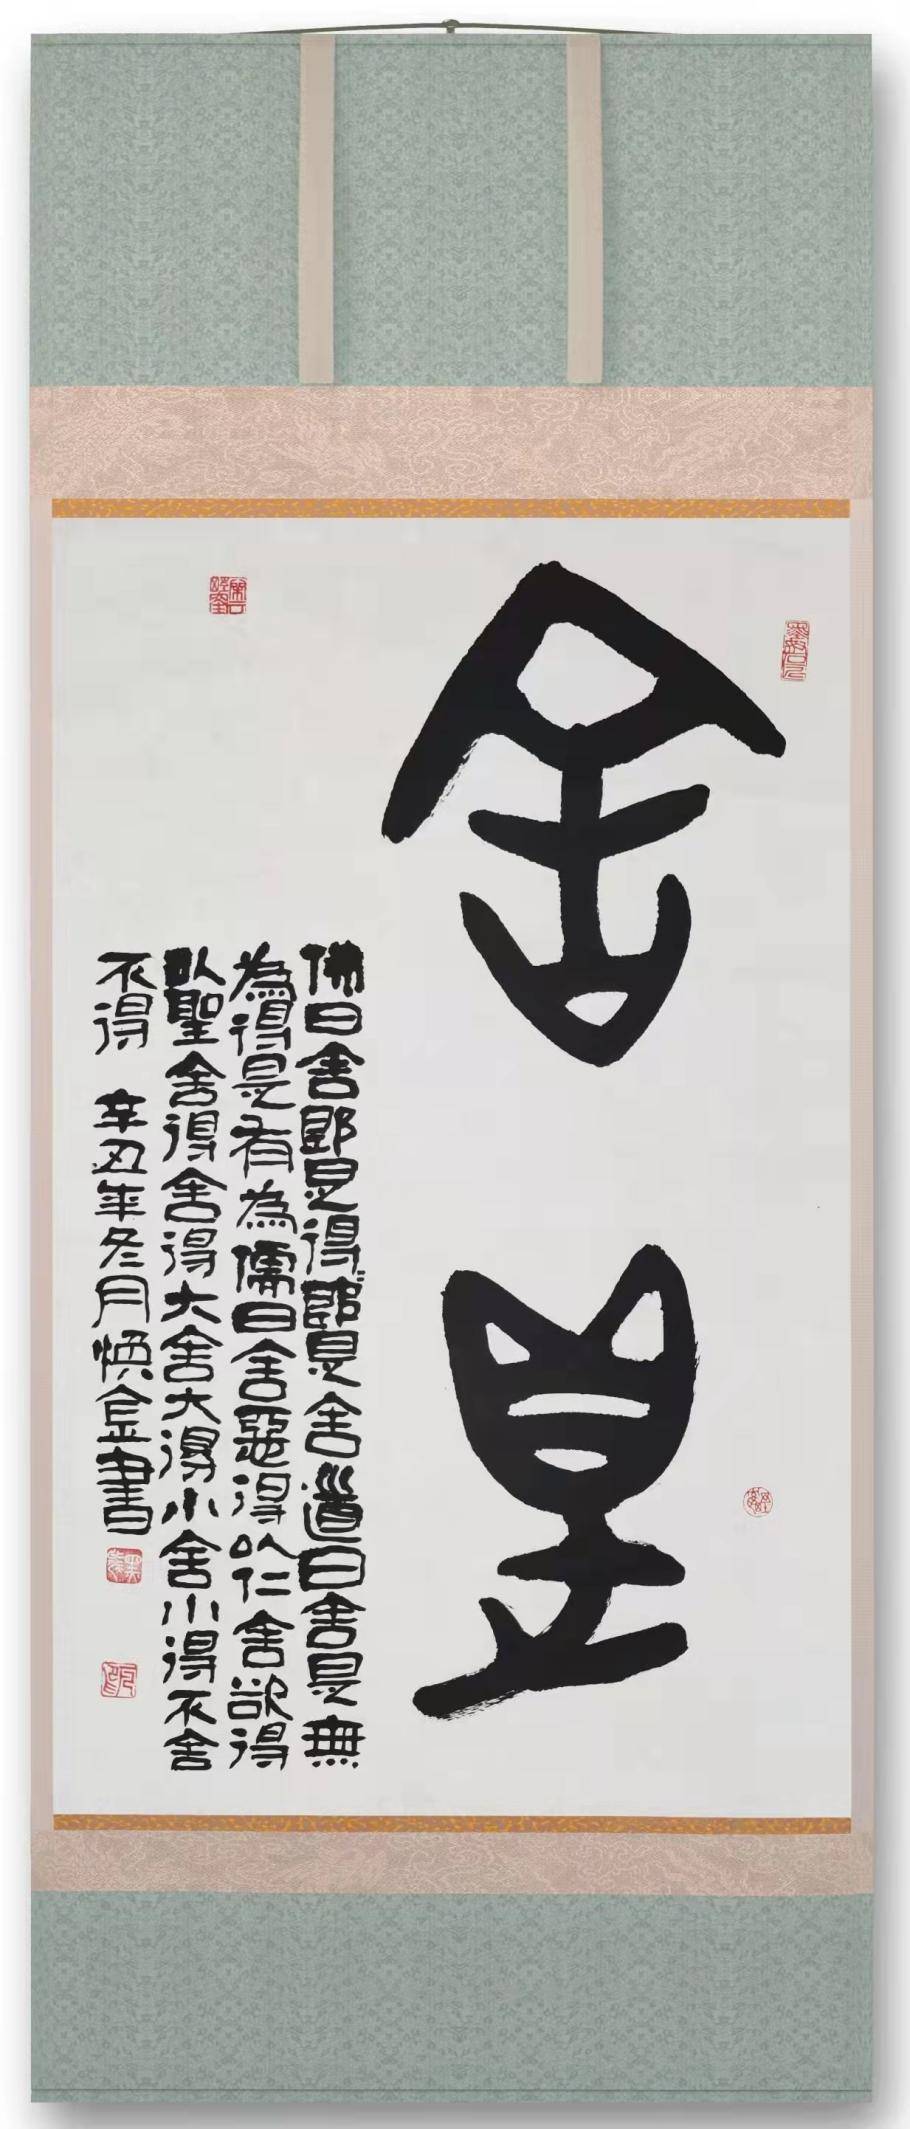 舍得
佛曰舍即是得即是舍道曰舍是無
為得是有為儒曰舍惡得以仁舍欲得
以聖舍得舍得大舍大得小舍小得不舍
不得 辛丑年冬月書